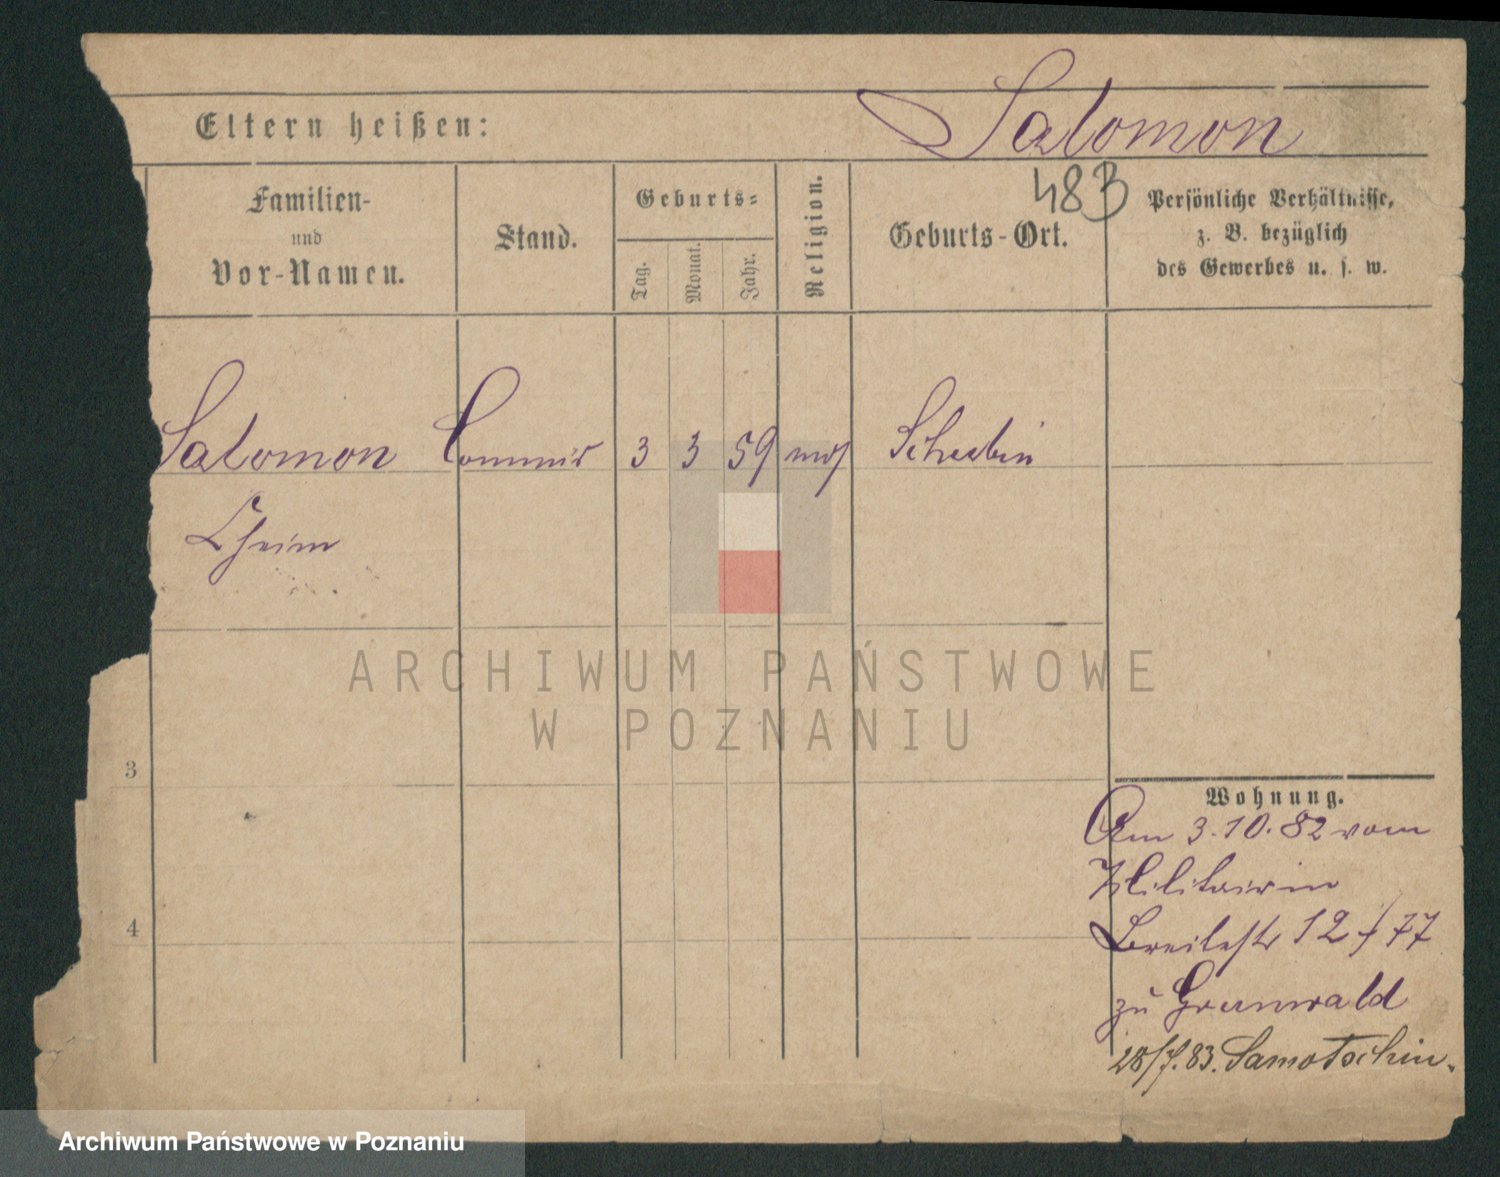 Eltern heißen:
Salomon
483
Familien-
und
Vor-Namen.
Stand.
Geburts-
Tag.
Monat.
Jahr.
Religion.
Geburts-Ort.
Persönliche Verhältnisse,
z. B. bezüglich
des Gewerbes u. s. w.
Salomon Commis 3 3 59 mos Schubin
Chaim
ARCHIWUM PAŃSTWOWE
W POZNANIU
3
Wohnung.
Am 3.10.82 vom
Militair in
Breitestr 12/77
4
zu Grunwald
28/7.83. Samotschin.
Archiwum Państwowe w Poznaniu